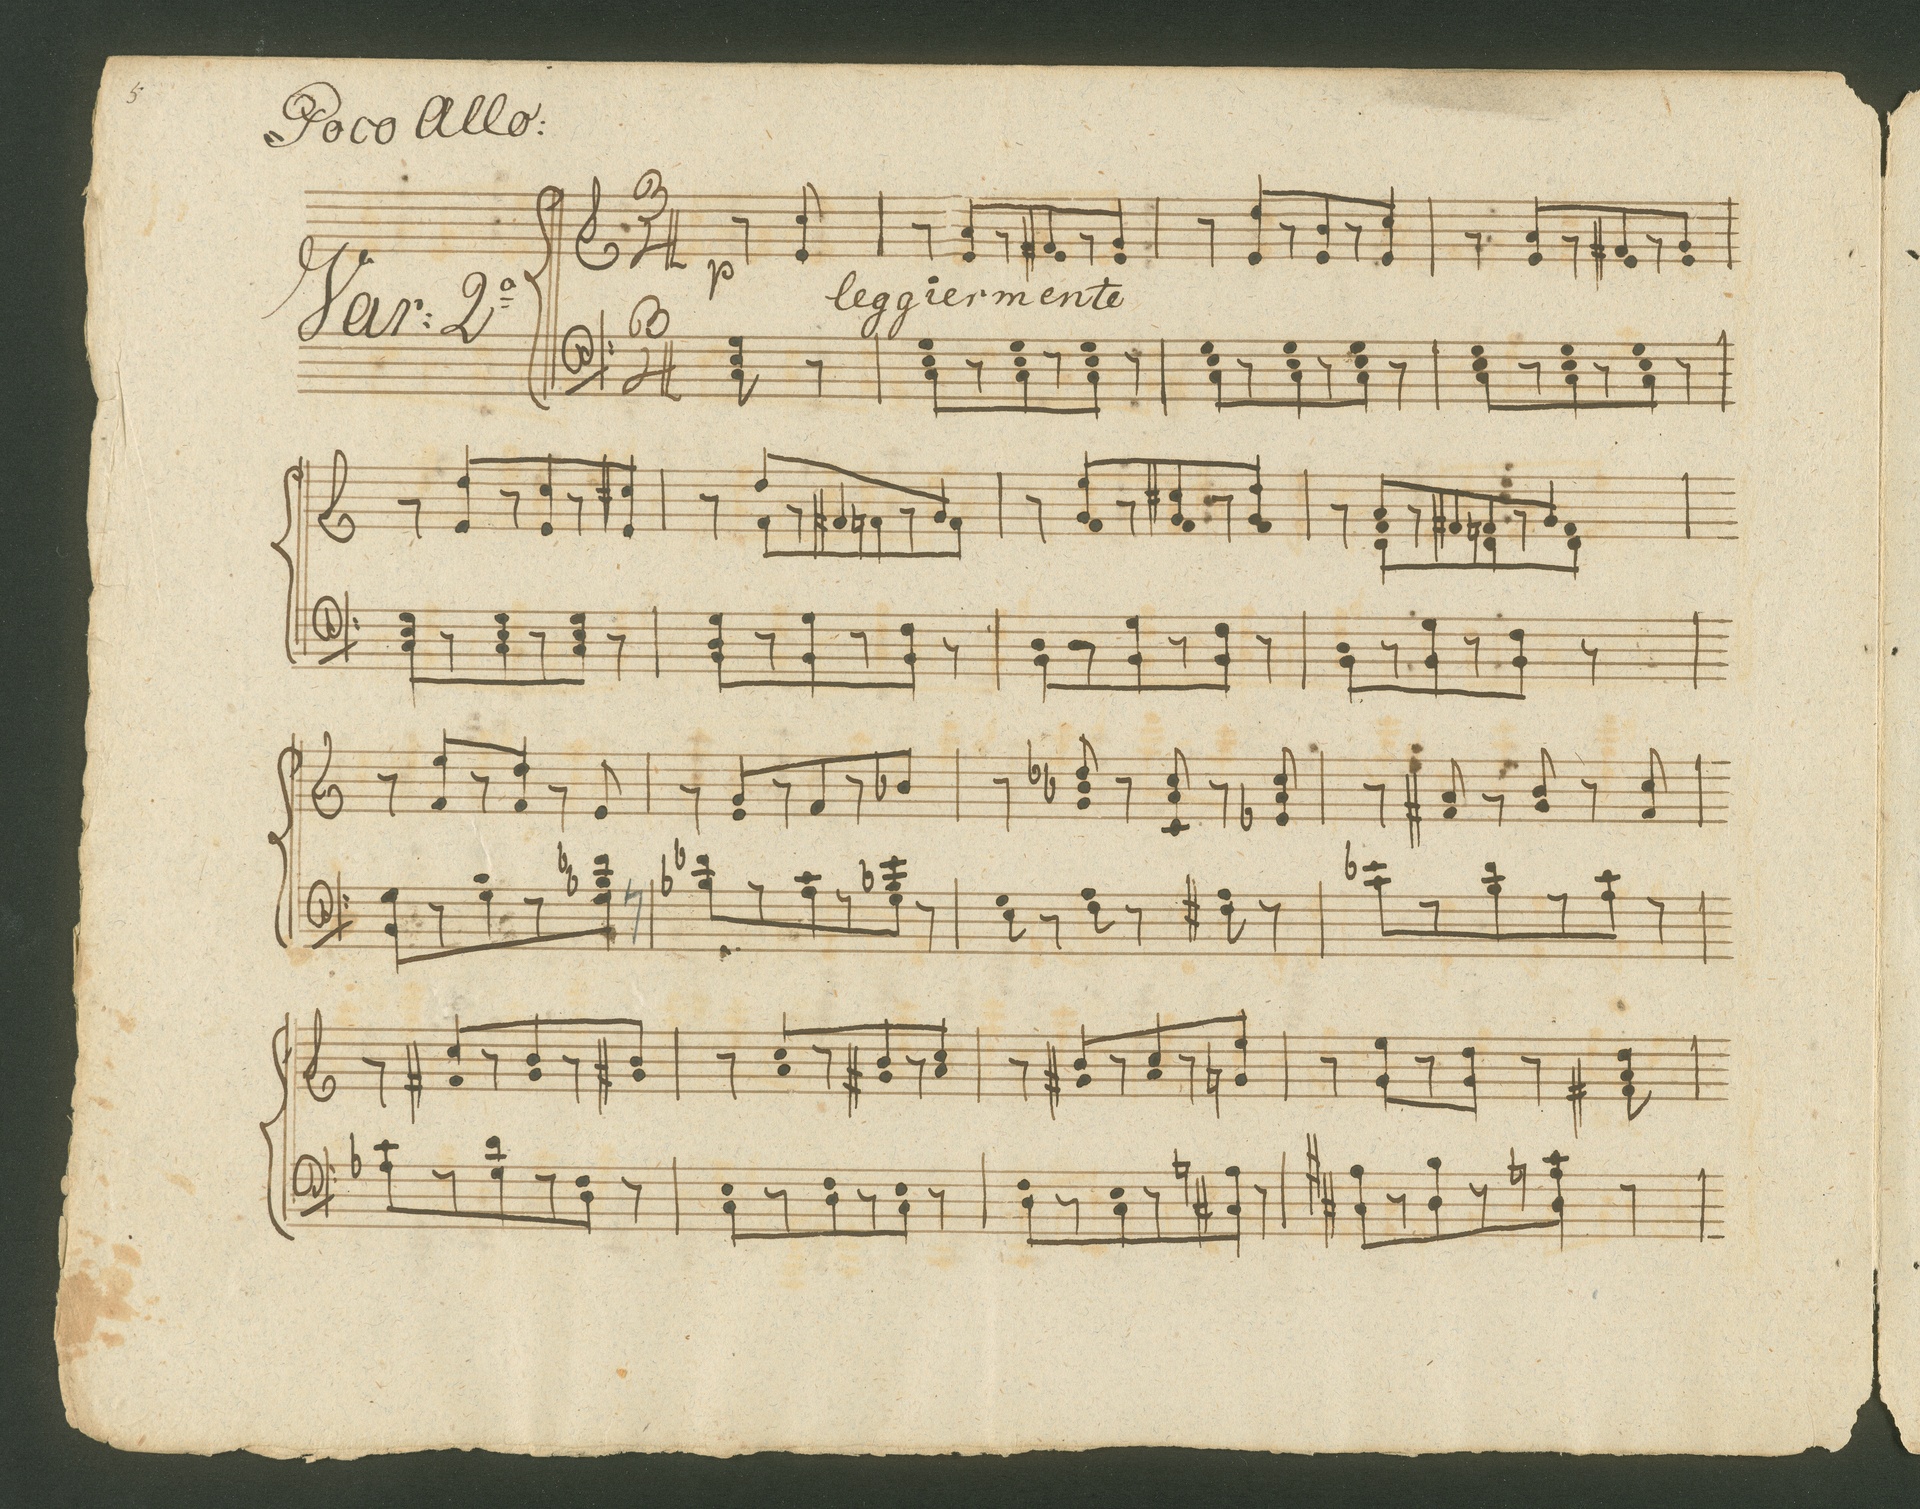 5
Poco Allo:
Var: 2ª
3
4
p
leggiermente
3
4